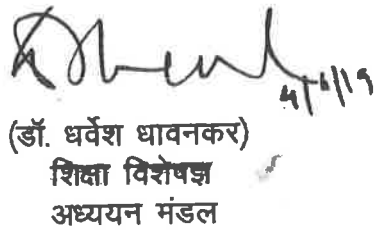 4/6/19
(डॉ. धर्वेश धावनकर)
शिक्षा विशेषज्ञ
अध्ययन मंडल